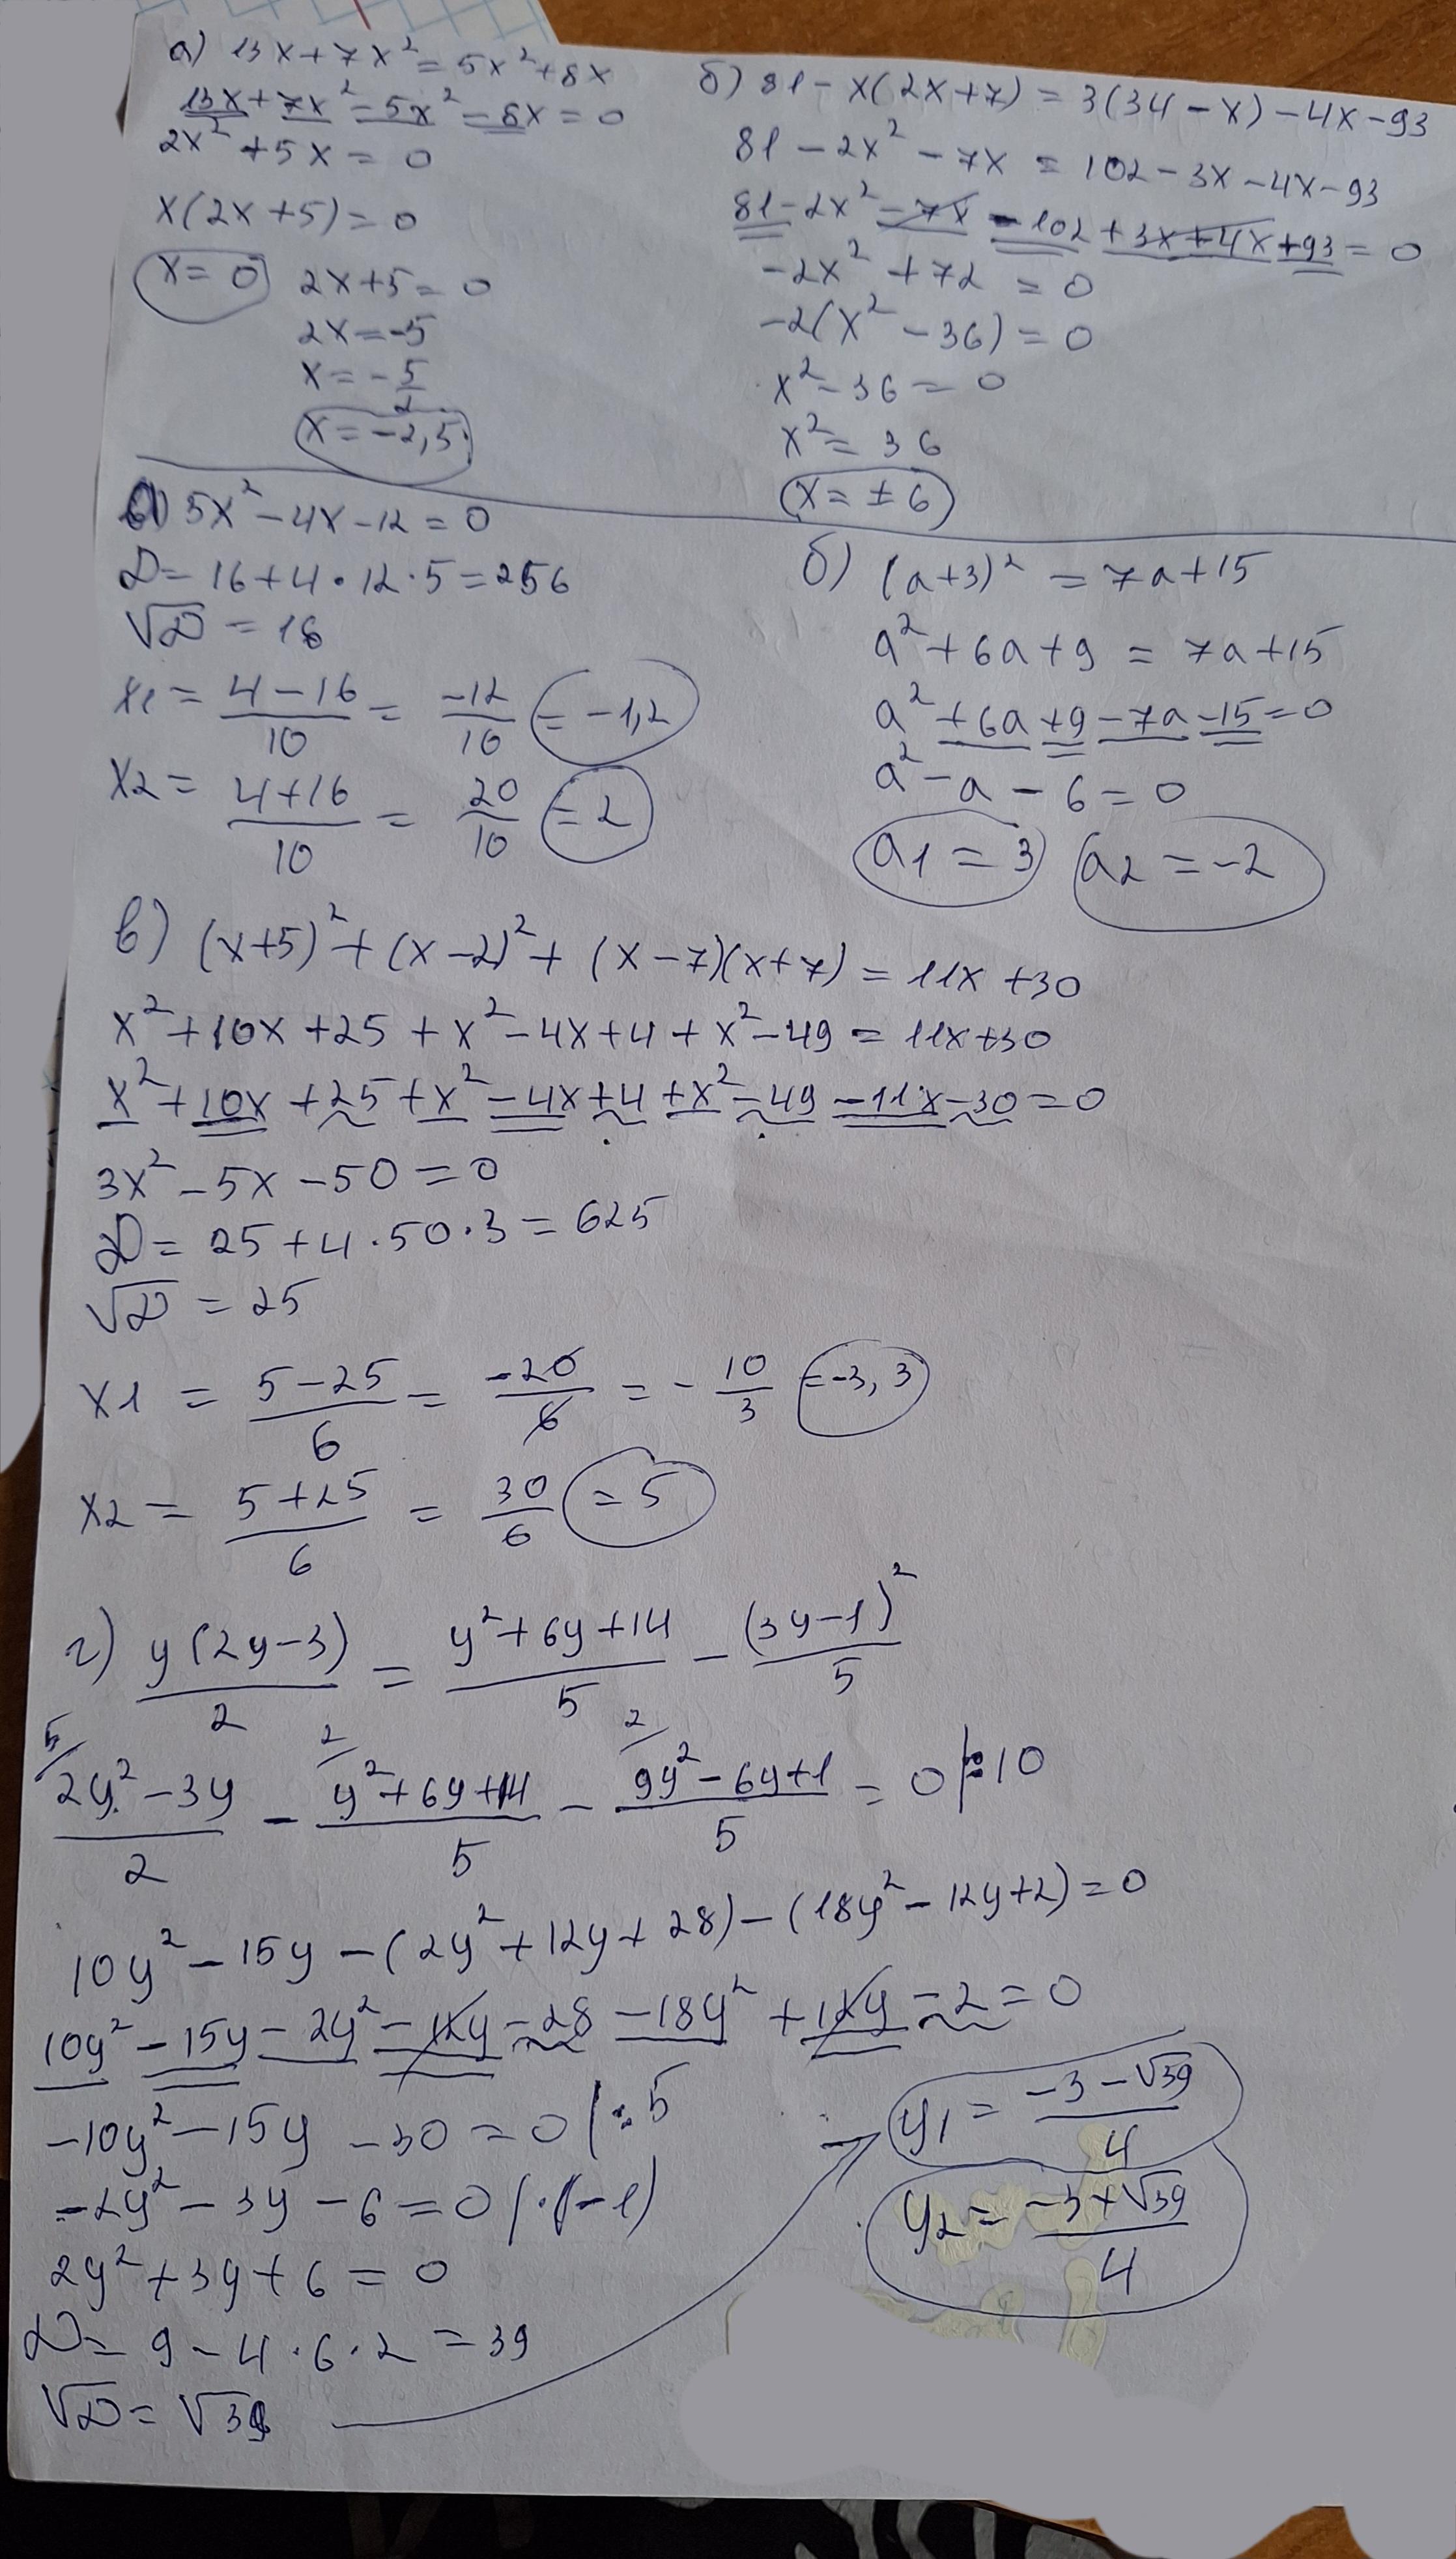 а) 13x+7x²=5x²+8x
13x+7x²-5x²-8x=0
2x²+5x=0
x(2x+5)=0
x=0 2x+5=0
2x=-5
x=-5/2
x=-2,5
б) 81-x(2x+7)=3(34-x)-4x-93
81-2x²-7x=102-3x-4x-93
81-2x²-7x-102+3x+4x+93=0
-2x²+72=0
-2(x²-36)=0
x²-36=0
x²=36
x=±6
а) 5x²-4x-12=0
D=16+4·12·5=256
√D=16
x1=(4-16)/10=-12/10=-1,2
x2=(4+16)/10=20/10=2
б) (a+3)²=7a+15
a²+6a+9=7a+15
a²+6a+9-7a-15=0
a²-a-6=0
a1=3 a2=-2
в) (x+5)²+(x-2)²+(x-7)(x+7)=11x+30
x²+10x+25+x²-4x+4+x²-49=11x+30
x²+10x+25+x²-4x+4+x²-49-11x-30=0
3x²-5x-50=0
D=25+4·50·3=625
√D=25
x1=(5-25)/6=-20/6=-10/3=-3,3
x2=(5+25)/6=30/6=5
г) y(2y-3)/2=(y²+6y+14)/5-(3y-1)²/5
5/ (2y²-3y)/2 - 2/ (y²+6y+14)/5 - 2/ (9y²-6y+1)/5=0 |:10
10y²-15y-(2y²+12y+28)-(18y²-12y+2)=0
10y²-15y-2y²-12y-28-18y²+12y-2=0
-10y²-15y-30=0 |:5
-2y²-3y-6=0 |·(-1)
2y²+3y+6=0
D=9-4·6·2=39
√D=√39
y1=(-3-√39)/4
y2=(-3+√39)/4